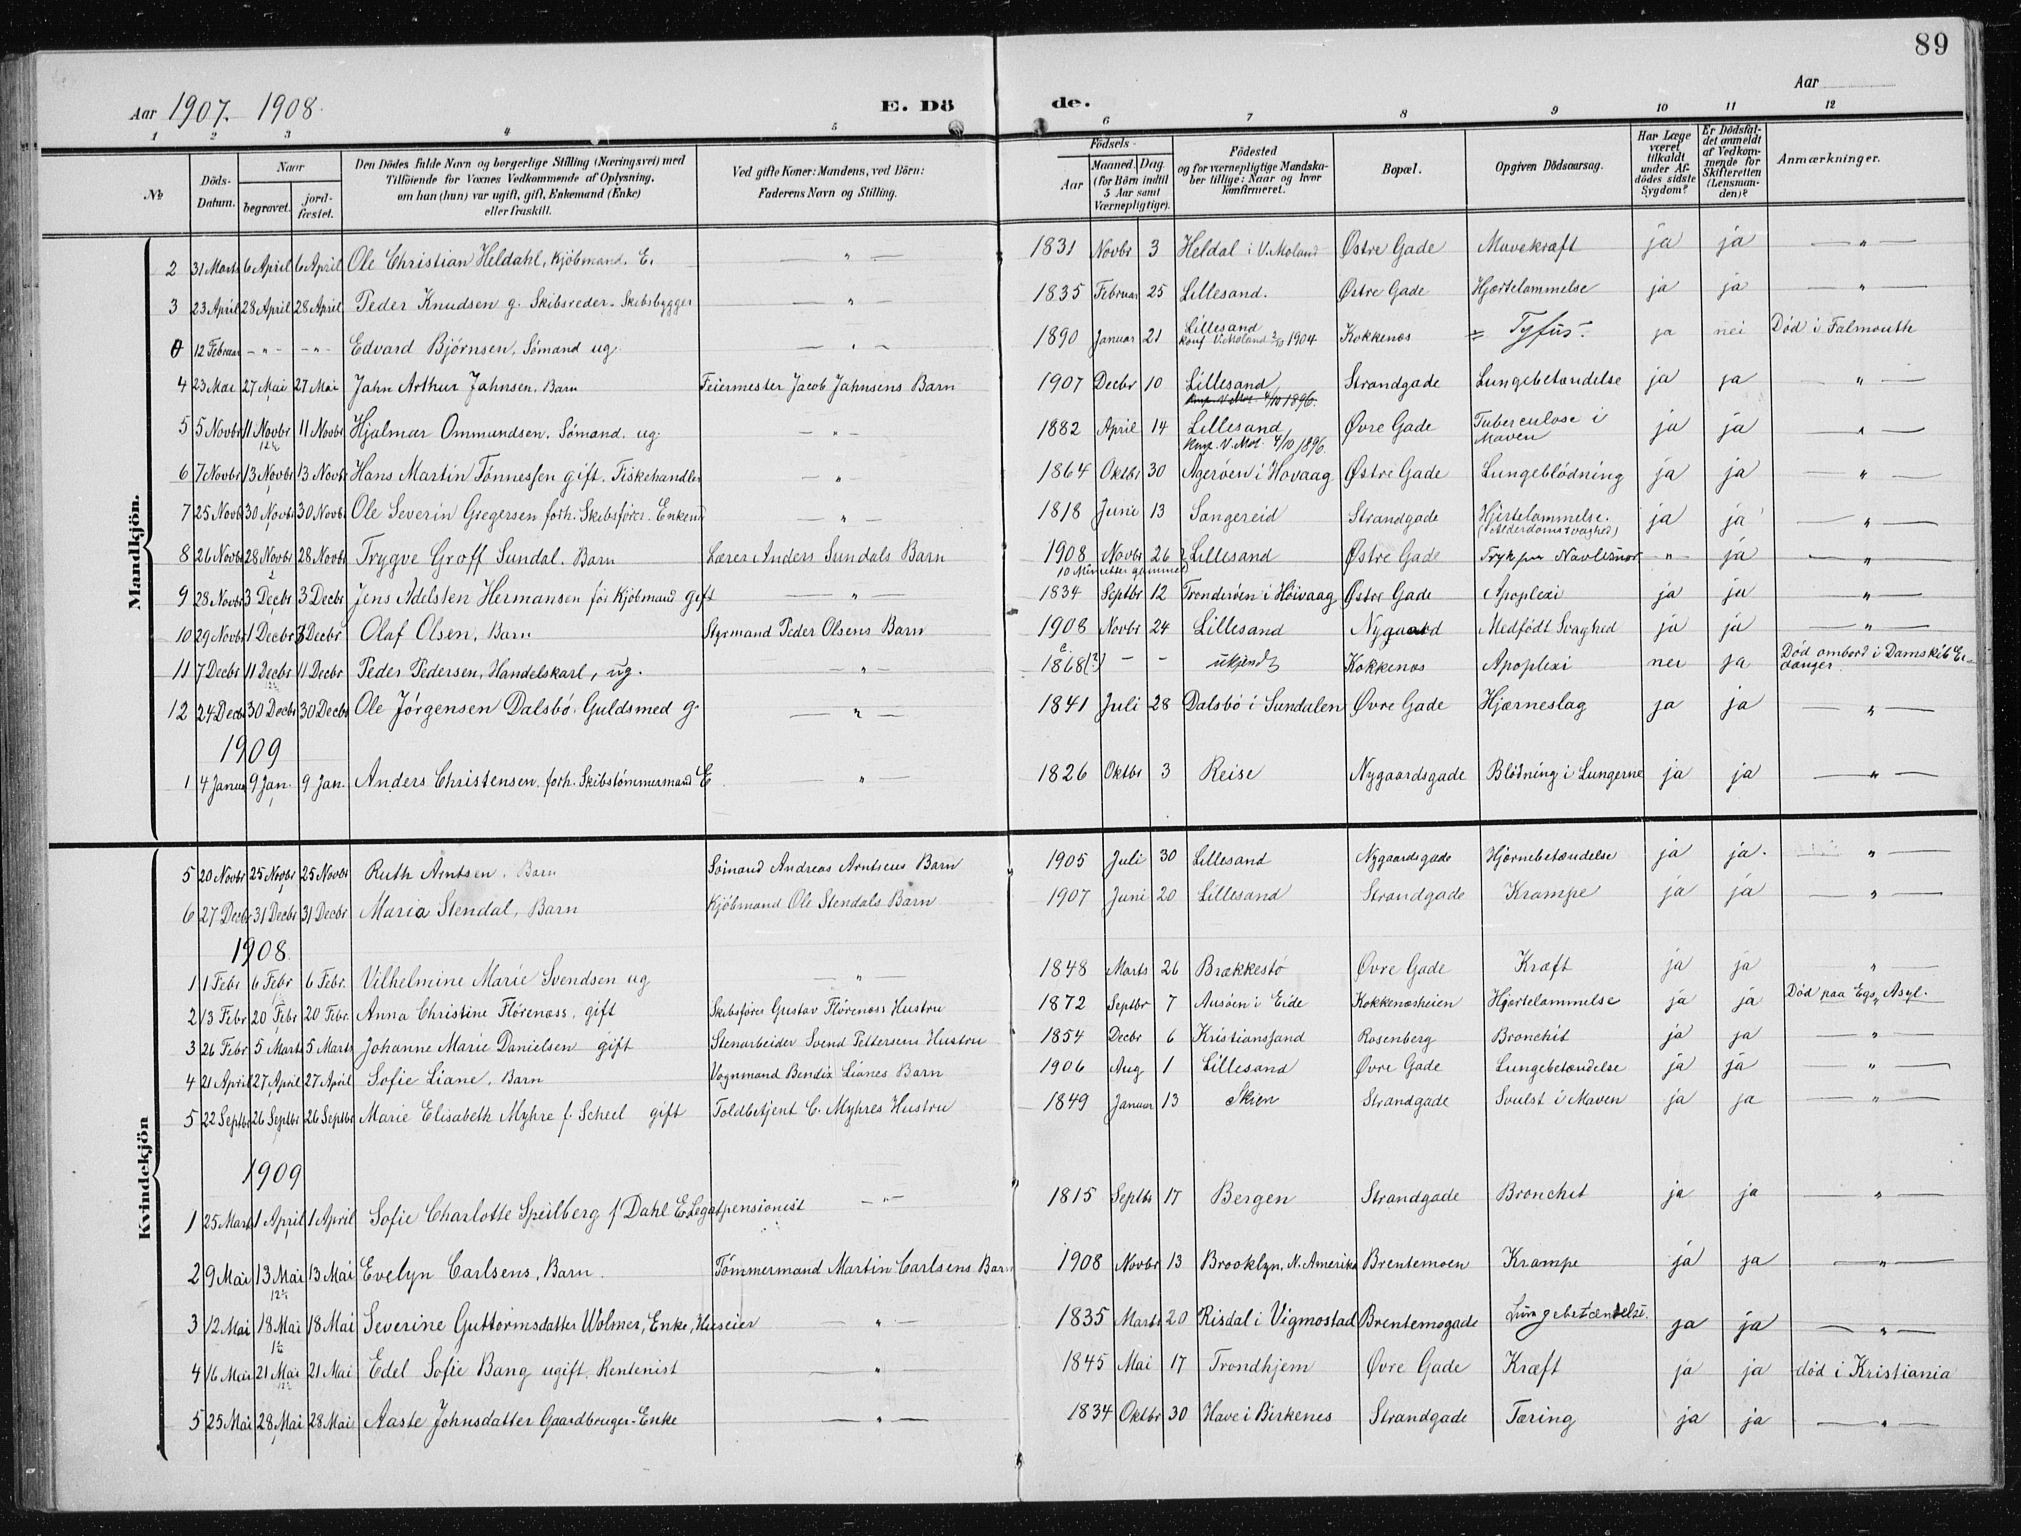 89
Aar 1907. 1908. E. Dö de. Aar
1 2 3 4 5 6 7 8 9 10 11 12
№ Döds-Datum. Naar begravet. jordfæstet. Den Dödes fulde Navn og borgerlige Stilling (Næringsvei) med Tilföiende for Voxnes Vedkommende af Oplysning, om han (hun) var ugift, gift, Enkemand (Enke) eller fraskilt. Ved gifte Koner: Mandens, ved Börn: Faderens Navn og Stilling. Födsels- Aar Maaned. Dag. (for Börn indtil 5 Aar samt Værnepligtige). Födested og for værnepligtige Mandskaber tillige: Naar og hvor konfirmeret. Bopæl. Opgiven Dödsaarsag. Har Læge været tilkaldt under Afdödes sidste Sygdom? Er Dödsfaldet anmeldt af Vedkommende for Skifteretten (Lensmanden)? Anmærkninger.
Mandkjön.
2 31 Marts 6 April 6 April Ole Christian Heldahl, Kjöbmand. E. — " — 1831 Novbr 3 Heldal i V. Moland Østre Gade Mavekræft ja ja — " —
3 23 April 28 April 28 April Peder Knudsen g. Skibsreder - Skibsbygger — " — 1835 Februar 25 Lillesand. Østre Gade Hjertelammelse ja ja — " —
0 12 Februar - " - - " - Edvard Bjørnsen, Sömand ug — " — 1890 Januar 21 Lillesand konf V. Moland 2/10 1904 Kokkenes = Tyfus - ja nei Död i Falmouth
4 23 Mai 27 Mai 27 Mai Jahn Arthur Jahnsen, Barn Feiermester Jacob Jahnsens Barn 1907 Decbr 10 Lillesand, Konf. V. Mol. 4/10 1896. Strandgade Lungebetændelse ja ja — " —
5 5 Novbr 11 Novbr 11 Novbr Hjalmar Ommundsen, Sömand. ug. — " — 1882 April 14 Lillesand Konf. V. Mol. 4/10 1896. Øvre Gade Tuberculose i Maven ja ja — " —
6 7 Novbr 13 Novbr 13 Novbr Hans Martin Tönnessen gift. Fiskehandler — " — 1864 Oktbr 30 Agerøen i Hovaag Østre Gade Lungeblödning ja ja — " —
7 25 Novbr 30 Novbr 30 Novbr Ole Severin Gregersen forh. Skibsförer. Enkemd — " — 1818 Juni 13 Sangereid Strandgade Hjertelammelse. (Alderdomssvaghed) ja ja — " —
8 26 Novbr 28 Novbr 28 Novbr Trygve Groff Sundal, Barn Lærer Anders Sundals Barn 1908 Novbr 26 10 Minutter gammel Lillesand Østre Gade Tryk paa Navlesnor - " - ja — " —
9 28 Novbr 3 Decbr 3 Decbr Jens Adelsten Hermansen for Kjöbmand gift — " — 1834 Septbr 12 Tronderöen i Höivaag Østre Gade Apoplexi ja ja — " —
10 29 Novbr 1 Decbr 3 Decbr Olaf Olsen, Barn Styrmand Peder Olsens Barn 1908 Novbr 24 Lillesand Nygaard Medfödt Svaghed ja ja — " —
11 7 Decbr 11 Decbr 11 Decbr Peder Pedersen, Handelskarl, ug. — " — 1868 (?) - - ukjendt Kokkenes Apoplexi nei ja Död ombord i Damskib Eidanger
12 24 Decbr 30 Decbr 30 Decbr Ole Jörgensen Dalsbö Guldsmed g. — " — 1841 Juli 28 Dalsbö i Sundalen Øvre Gade Hjærneslag ja ja — " —
1909
1 4 Januar 9 Jan. 9 Jan. Anders Christensen, forh. Skibstömmermand E — " — 1826 Oktbr 3 Reise Nygaardsgade Blödning i Lungerne ja ja — " —
Kvindekjön
5 20 Novbr 25 Novbr 25 Novbr Ruth Arntsen, Barn Sömand Andreas Arntsens Barn 1905 Juli 30 Lillesand Nygaardsgade Hjernebetændelse ja ja. — " —
6 27 Decbr 31 Decbr 31 Decbr Maria Stendal, Barn Kjöbmand Ole Stendals Barn 1907 Juni 20 Lillesand Strandgade Krampe ja ja — " —
1908.
1 1 Febr 6 Febr 6 Febr. Vilhelmine Marie Svendsen ug — " — 1848 Marts 26 Brækkestö Øvre Gade Kræft ja ja — " —
2 13 Febr 20 Febr 20 Febr. Anna Christine Flörenæss, gift Skibsförer Gustav Flörenæss Hustru 1872 Septbr 7 Ausöen i Eide Kokkenæsheien Hjertelammelse ja ja Död paa Egs Asyl.
3 26 Febr 5 Marts 5 Marts Johanne Marie Danielsen gift Stenarbeider Svend Pettersens Hustru 1854 Decbr 6 Kristianssand Rosenberg Bronchit ja ja — " —
4 21 April 27 April 27 April Sofie Liane, Barn Vognmand Bendix Lianes Barn 1906 Aug 1 Lillesand Øvre Gade Lungebetændelse ja ja — " —
5 22 Septbr 26 Septbr 26 Septbr Marie Elisabeth Myhre f. Scheel gift Toldbetjent C. Myhres Hustru 1849 Januar 13 Skien Strandgade Svulst i Maven ja ja — " —
1909
1 25 Marts 1 April 1 April Sofie Charlotte Speilberg f Dahl E. Legatpensionist — " — 1815 Septbr 17 Bergen Strandgade Bronchit ja ja — " —
2 9 Mai 13 Mai 13 Mai Evelyn Carlsens, Barn. Tömmermand Martin Carlsens Barn 1908 Novbr 13 Brooklyn, N. Amerika Brentemoen Krampe ja ja — " —
3 12 Mai 18 Mai 18 Mai Severine Guttormsdatter Wolmer, Enke, Huseier — " — 1835 Marts 20 Risdal i Vigmostad Brentemogade Lungebetændelse. ja ja — " —
4 16 Mai 21 Mai 21 Mai Edel Sofie Bang ugift, Rentenist — " — 1845 Mai 17 Trondhjem Øvre Gade Kræft ja ja död i Kristiania
5 25 Mai 28 Mai 28 Mai Aaste Johnsdatter Gaardbruger-Enke — " — 1834 Oktbr 30 Have i Birkenes Strandgade Tæring ja ja — " —